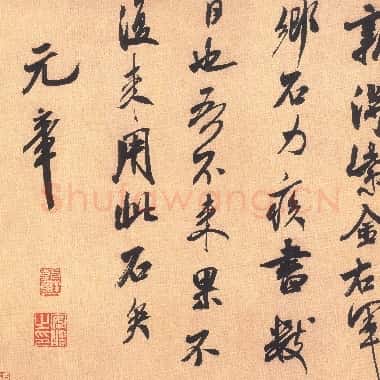 新得紫金右軍
鄉石力疾書數
日也吾不來果不
復來用此石矣
元章
Shufawang.CN